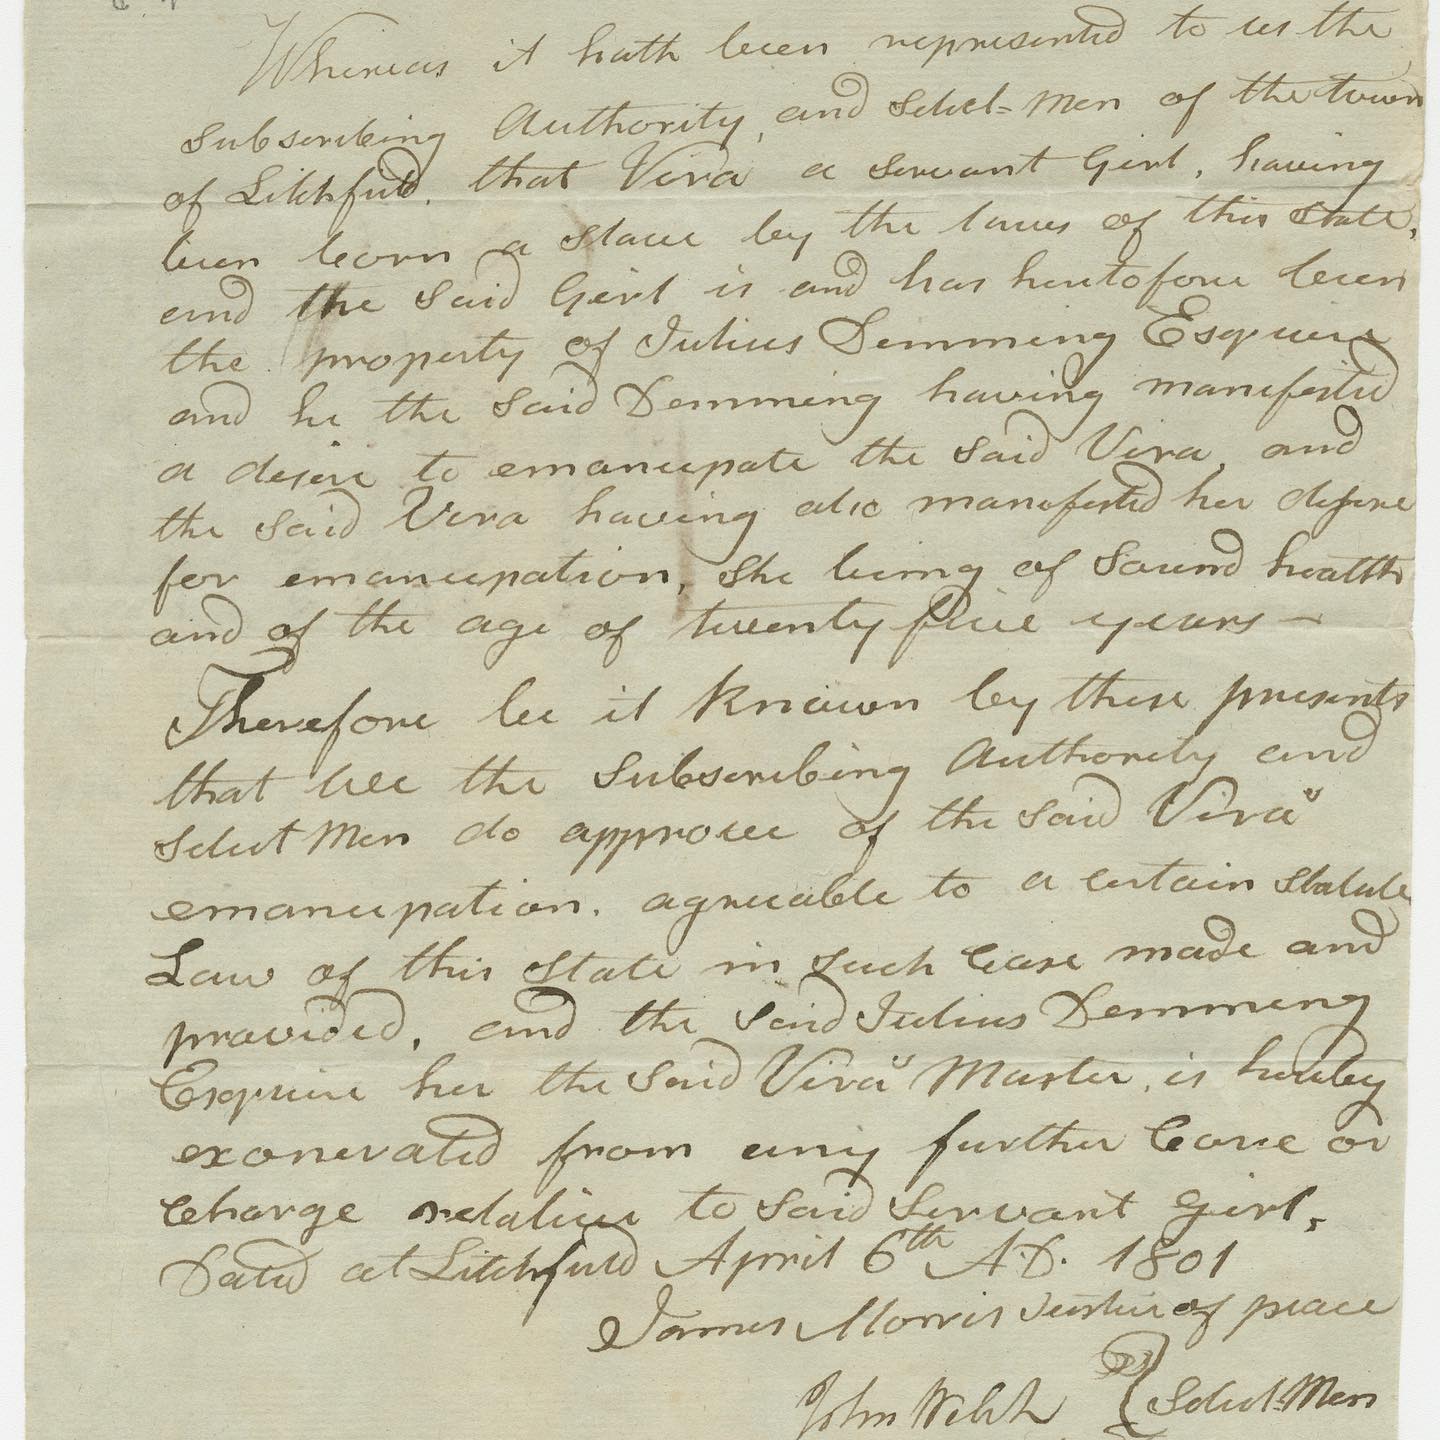 Whereas it hath been represented to us the
Subscribing Authority, and Select=Men of the town
of Litchfield, that Vira a servant Girl, having
been born a slave by the laws of this State,
and the said Girl is and has heretofore been
the property of Julius Demming Esquire
and he the said Demming having manifested
a desire to emancipate the said Vira, and
the said Vira having also manifested her desire
for emancipation, she being of sound health
and of the age of twenty five years —
Therefore be it known by these presents
that wee the Subscribing Authority and
Select Men do approve of the said Vira's
emancipation. agreeable to a certain Statute
Law of this State in such Case made and
provided, and the said Julius Demming
Esquire her the said Vira's Master, is hereby
exonerated from any further Care or
Charge relative to said Servant Girl.
Dated at Litchfield April 6th A.D. 1801
James Morris Justice of peace
John Welch } Select-Men